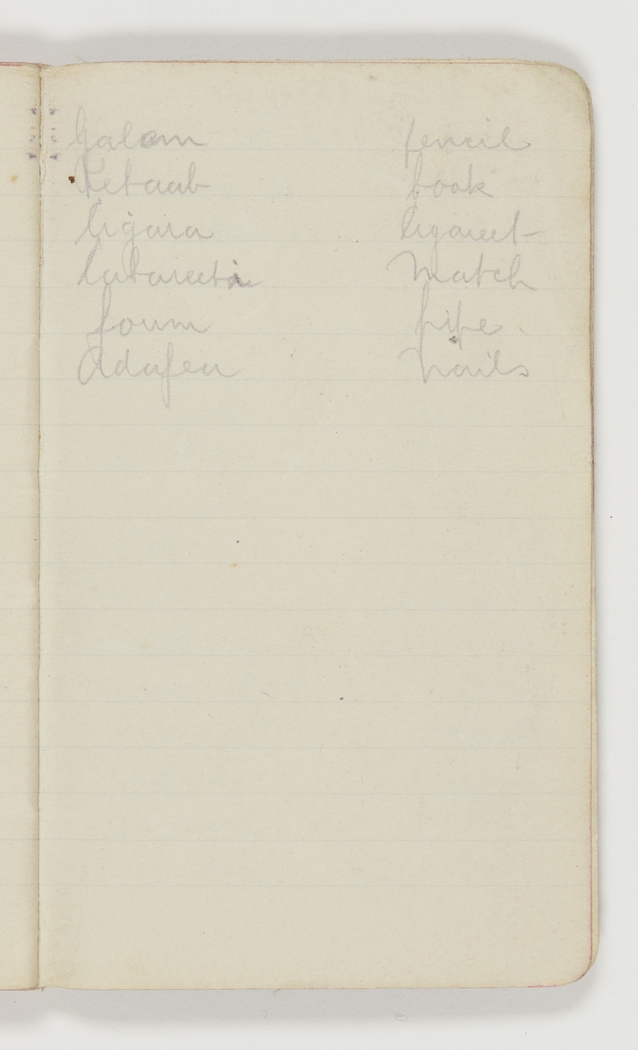 Galom pencil
Ketaab book
Cigara Cigaret
match
foum pipe.
Adafea Nails